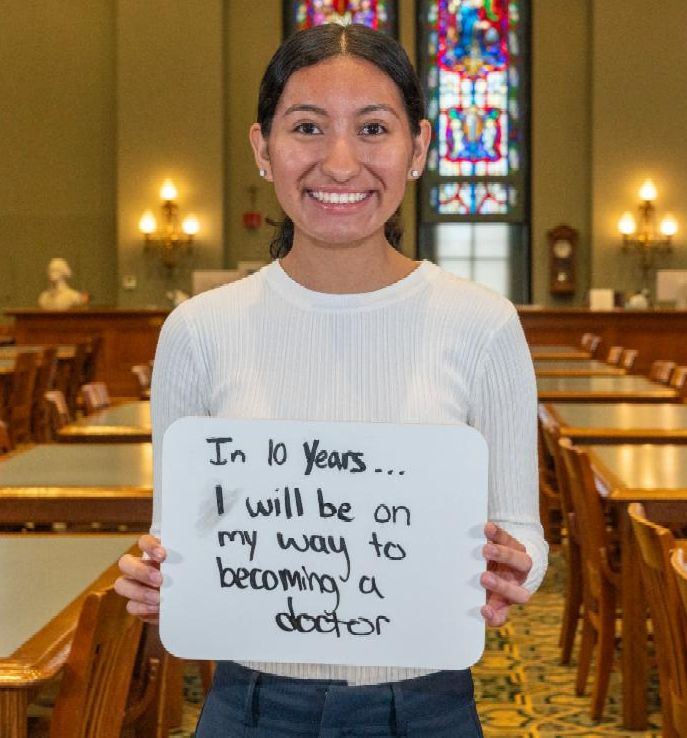 In 10 Years...
I will be on
my way to
becoming a
doctor